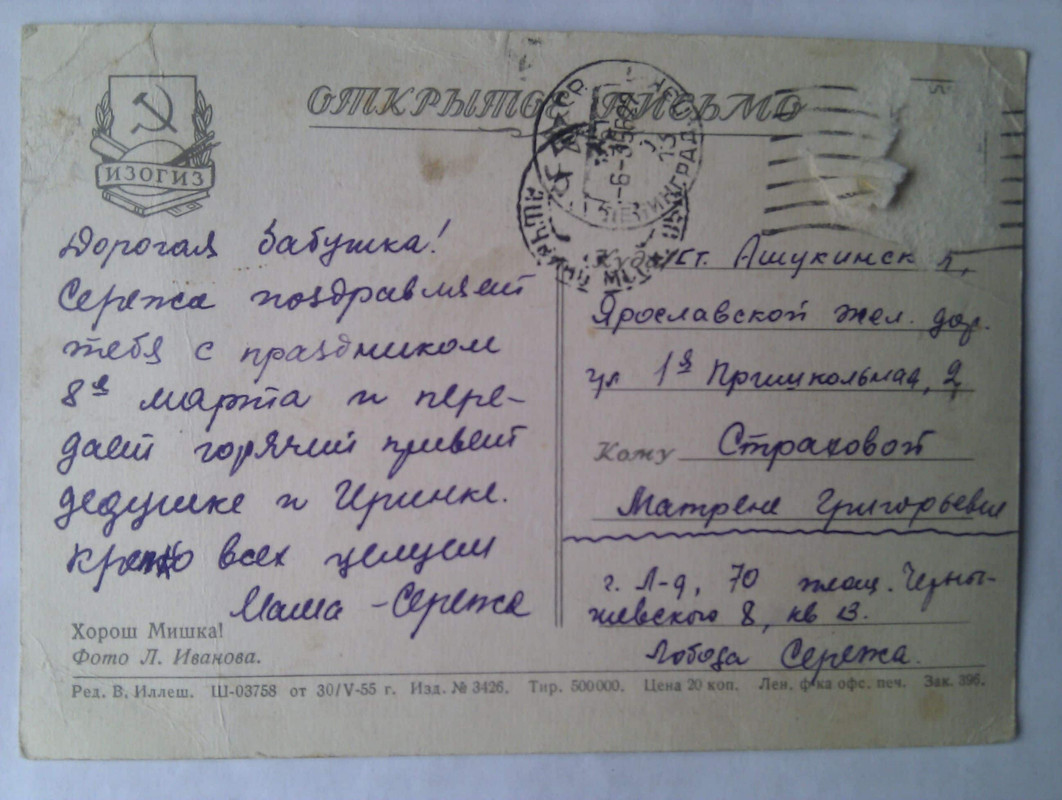 ОТКРЫТОЕ ПИСЬМО
ИЗОГИЗ
Дорогая бабушка!
Сережа поздравляет
тебя с праздником
8е марта и пере-
дает горячий привет
дедушке и Иринке.
Крепко всех целуем
Мама - Сережа
Хорош Мишка!
Фото Л. Иванова.
Куда ст. Ашукинская,
Ярославской жел. дор.
ул 1я Пришкольная, 2
Кому Страховой
Матрене Григорьевне
г. Л-д, 70 площ. Черны-
шевского 8, кв 13.
Лобода Сережа.
Ред. В. Иллеш. Ш-03758 от 30/V-55 г. Изд. № 3426. Тир. 500000. Цена 20 коп. Лен. ф-ка офс. печ. Зак. 396.
ЛЕНИНГРАД